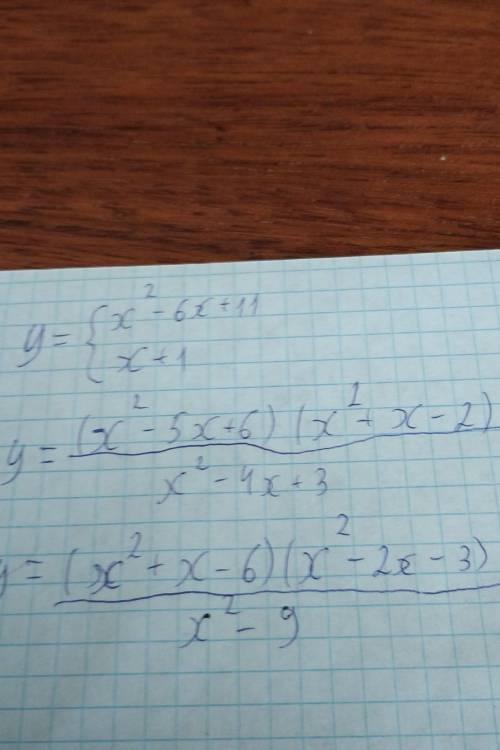 y = { x² - 6x + 11
x + 1
y = (x² - 5x + 6) (x² + x - 2)
x² - 4x + 3
y = (x² + x - 6)(x² - 2x - 3)
x² - 9